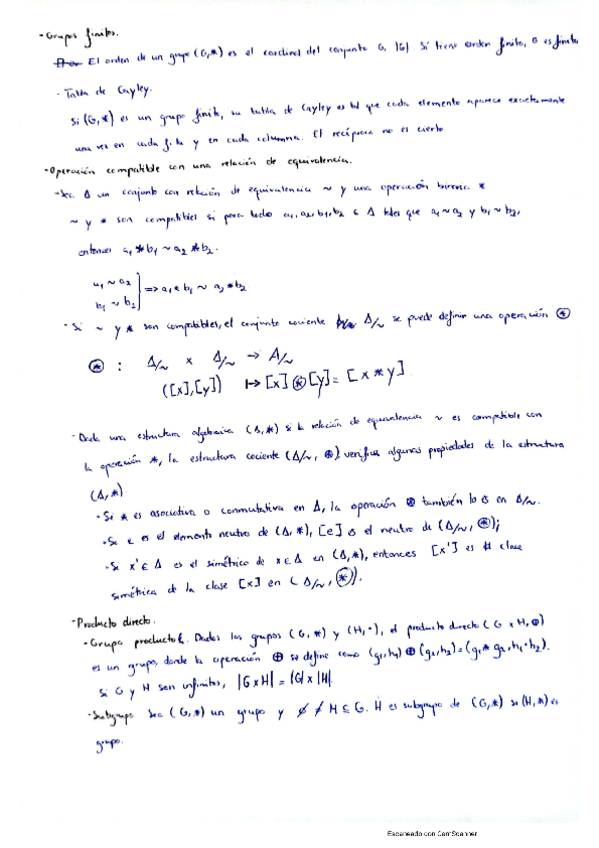 · Grupos finitos.
El orden de un grupo (G,*) es el cardinal del conjunto G, |G| Si tiene orden finito, G es finito
· Tabla de Cayley.
Si (G,*) es un grupo finito, su tabla de Cayley es tal que cada elemento aparece exactamente
una vez en cada fila y en cada columna. El recíproco no es cierto
· Operación compatible con una relación de equivalencia.
· Sea A un conjunto con relación de equivalencia ~ y una operación binaria *
~ y * son compatibles si para todo a₁,a₂,b₁,b₂ ∈ A tales que a₁~a₂ y b₁~b₂,
entonces a₁*b₁ ~ a₂*b₂.
a₁~a₂
b₁~b₂ } => a₁*b₁ ~ a₂*b₂
· Si ~ y * son compatibles, el conjunto cociente A/~ se puede definir una operación ⊛
⊛ : A/~ x A/~ → A/~
([x],[y]) ↦ [x]⊛[y]=[x*y]
· Dada una estructura algebraica (A,*) si la relación de equivalencia ~ es compatible con
la operación *, la estructura cociente (A/~, ⊛) verifica algunas propiedades de la estructura
(A,*)
· Si * es asociativa o conmutativa en A, la operación ⊛ también lo es en A/~.
· Si e es el elemento neutro de (A,*), [e] es el neutro de (A/~, ⊛);
· Si x'∈A es el simétrico de x∈A en (A,*), entonces [x'] es la clase
simétrica de la clase [x] en (A/~, ⊛).
· Producto directo.
· Grupo producto. Dados los grupos (G,*) y (H,·), el producto directo (G x H,⊕)
es un grupo, donde la operación ⊕ se define como (g₁,h₁)⊕(g₂,h₂)=(g₁*g₂,h₁·h₂).
Si G y H son infinitos, |GxH|=|G|x|H|
· Subgrupo Sea (G,*) un grupo y ∅≠H⊆G. H es subgrupo de (G,*) si (H,*) es
grupo.
Escaneado con CamScanner